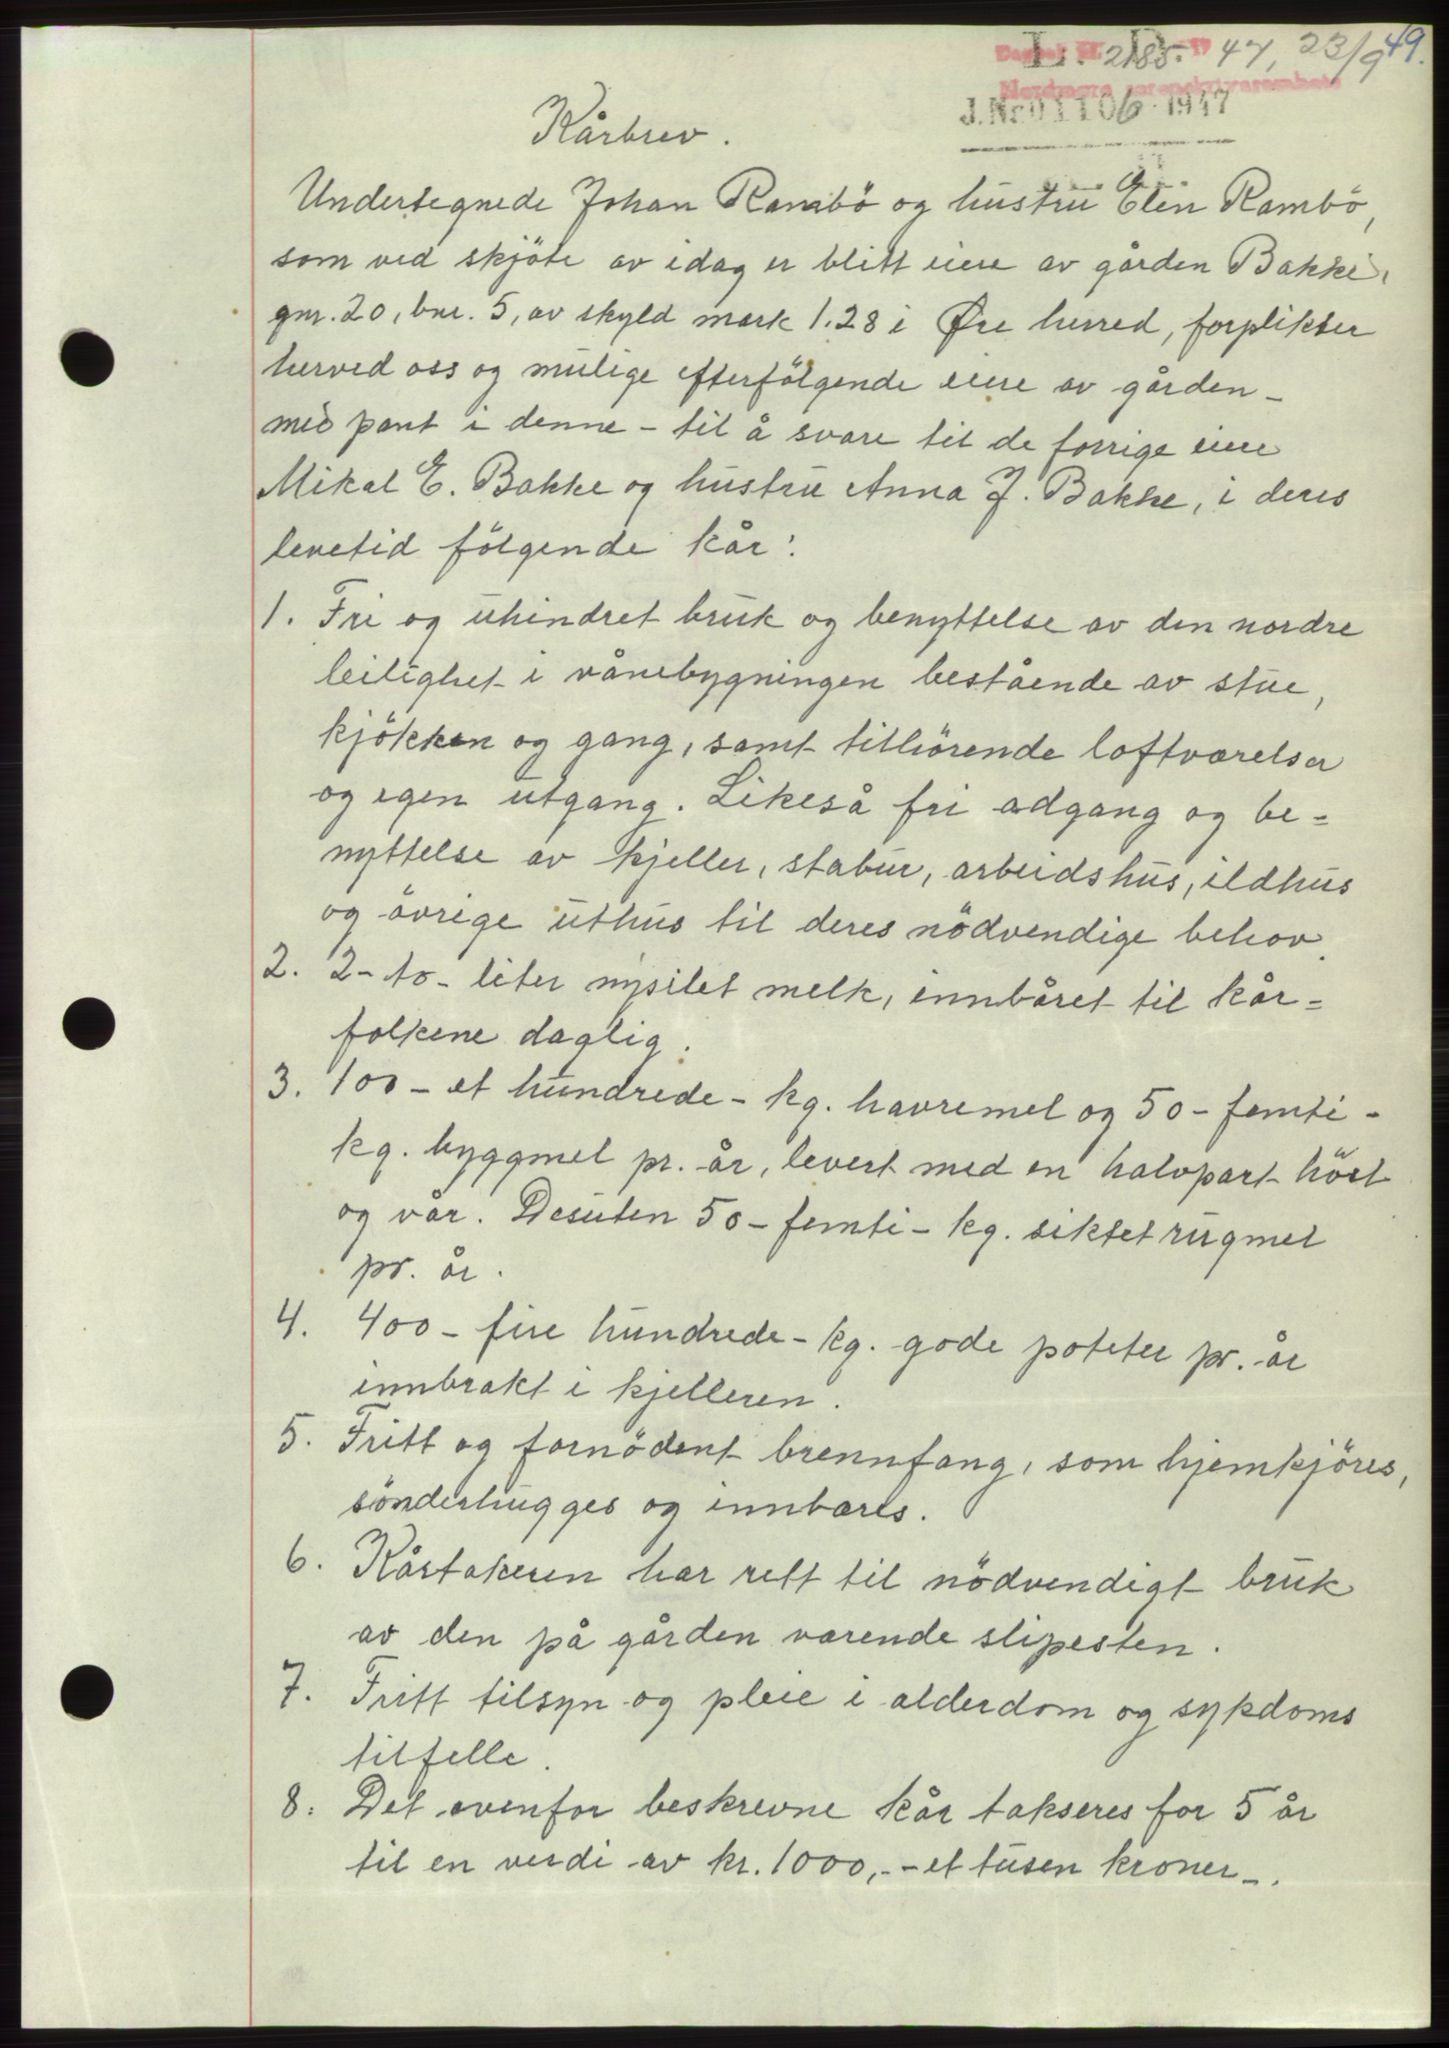 49.
L. D.
Dagbok nr. 2185 19 47, 23/9
Nordmøre sorenskriverembete
J.Nr 01106 1947
Kårbrev.
Undertegnede Johan Rambö og hustru Elen Rambö,
som ved skjöte av idag er blitt eiere av gården Bakke,
gnr. 20, bnr. 5, av skyld mark 1.28 i Øre herred, forplikter
herved oss og mulige efterfölgende eiere av gården -
med pant i denne - til å svare til de forrige eiere
Mikal E. Bakke og hustru Anna J. Bakke, i deres
levetid fölgende kår:
1. Fri og uhindret bruk og benyttelse av den nordre
leilighet i vånebygningen bestående av stue,
kjökken og gang, samt tilhörende loftværelser
og egen utgang. Likeså fri adgang og be=
nyttelse av kjeller, stabur, arbeidshus, ildhus
og övrige uthus til deres nödvendige behov.
2. 2 - to - liter nysilet melk, innbåret til kår=
folkene daglig.
3. 100 - et hundrede - kg. havremel og 50 - femti -
kg. byggmel pr. år, levert med en halvpart höst
og vår. Desuten 50 - femti - kg. siktet rugmel
pr. år.
4. 400 - fire hundrede - kg. gode poteter pr. år
innbrakt i kjelleren.
5. Fritt og fornödent brennfang, som hjemkjöres,
sönderhugges og innbæres.
6. Kårtakeren har rett til nödvendigt bruk
av den på gården værende slipesten.
7. Fritt tilsyn og pleie i alderdom og sykdoms
tilfelle.
8. Det ovenfor beskrevne kår takseres for 5 år
til en verdi av kr. 1000,- - et tusen kroner -.